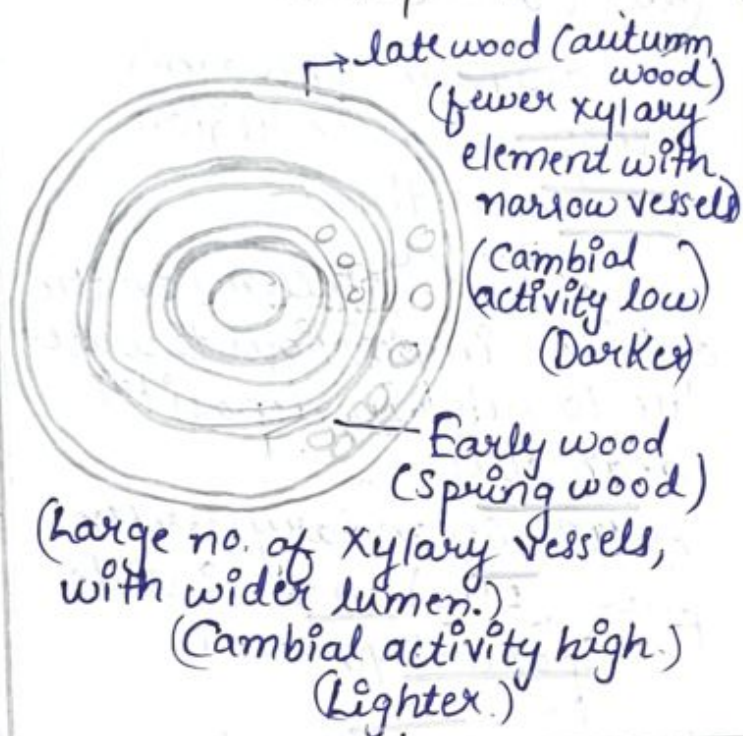 late wood (autumn
wood)
(fewer xylary
element with
narrow vessels)
(Cambial
activity low)
(Darker)
Early wood
(Spring wood)
(Large no. of xylary vessels,
with wider lumen.)
(Cambial activity high.)
(Lighter.)